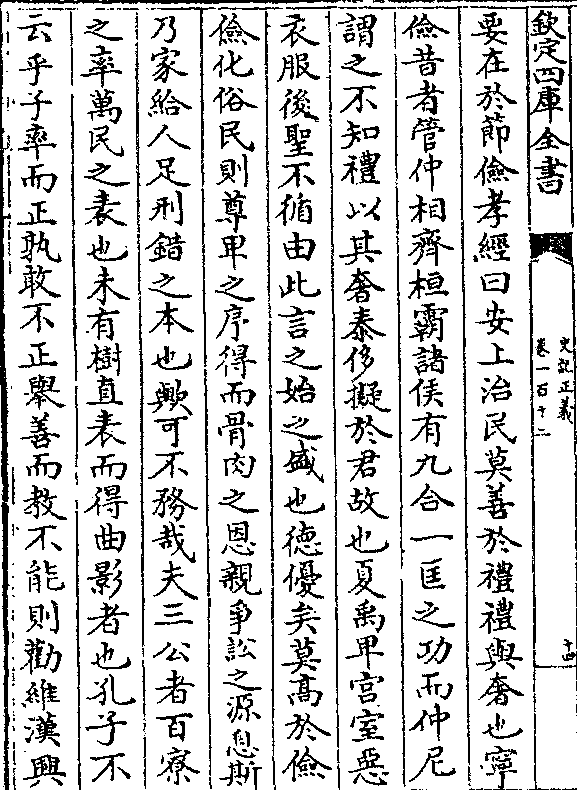 欽定四庫全書
史記正義
卷一百十二
十四
要在於節儉孝經曰安上治民莫善於禮禮與奢也寧
儉昔者管仲相齊桓霸諸侯有九合一匡之功而仲尼
謂之不知禮以其奢泰侈擬於君故也夏禹卑宫室惡
衣服後聖不循由此言之始之盛也德優矣莫髙於儉
儉化俗民則尊卑之序得而骨肉之恩親爭訟之源息斯
乃家給人足刑錯之本也歟可不務哉夫三公者百寮
之率萬民之表也未有樹直表而得曲影者也孔子不
云乎子率而正孰敢不正舉善而教不能則勸維漢興